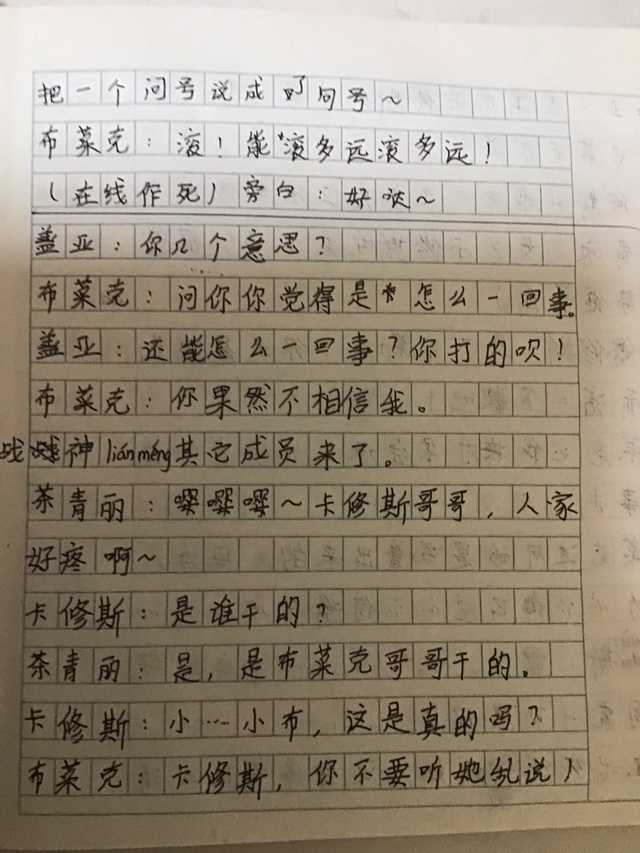 把一个问号说成了句号~
布莱克：滚！能滚多远滚多远！
（在线作死）旁白：好哒~
盖亚：你几个意思？
布莱克：问你你觉得是怎么一回事。
盖亚：还能怎么一回事？你打的呗！
布莱克：你果然不相信我。
战神liánméng其它成员来了。
茶青丽：嘤嘤嘤~卡修斯哥哥，人家
好疼啊~
卡修斯：是谁干的？
茶青丽：是，是布莱克哥哥干的。
卡修斯：小…小布，这是真的吗？
布莱克：卡修斯，你不要听她乱说！